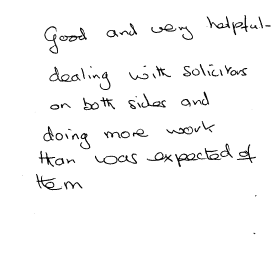 Good and very helpful-
dealing with solicitors
on both sides and
doing more work
than was expected of
them